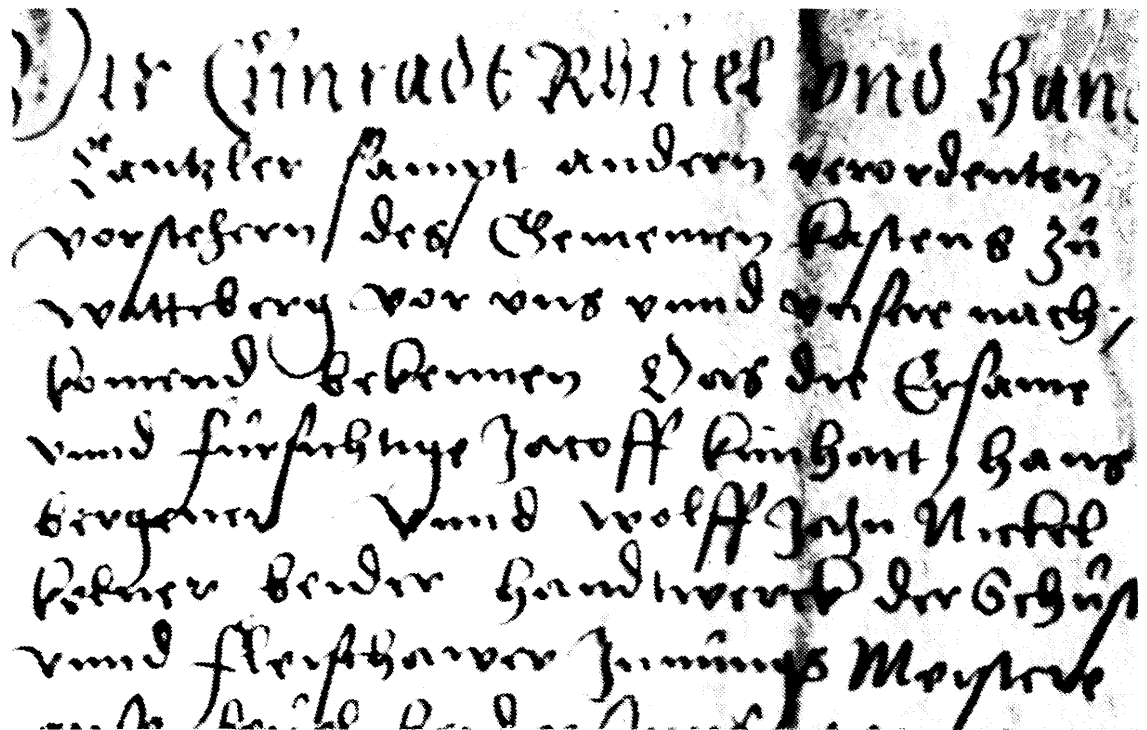 Wir Cünradt Rühel vnd Han
Cantzler sampt andern verordenten
vorstehern des Gemeinen kastens zů
Witteberg vor vns vnnd vnsere nach,
komend bekennen Das die Ersame
vnnd fürsichtige Jacoff künhart, Hans
vnnd wolff Jahn Nickel
beider Handtwerck der Schüst
vnnd fleischawer Innungs Meistere